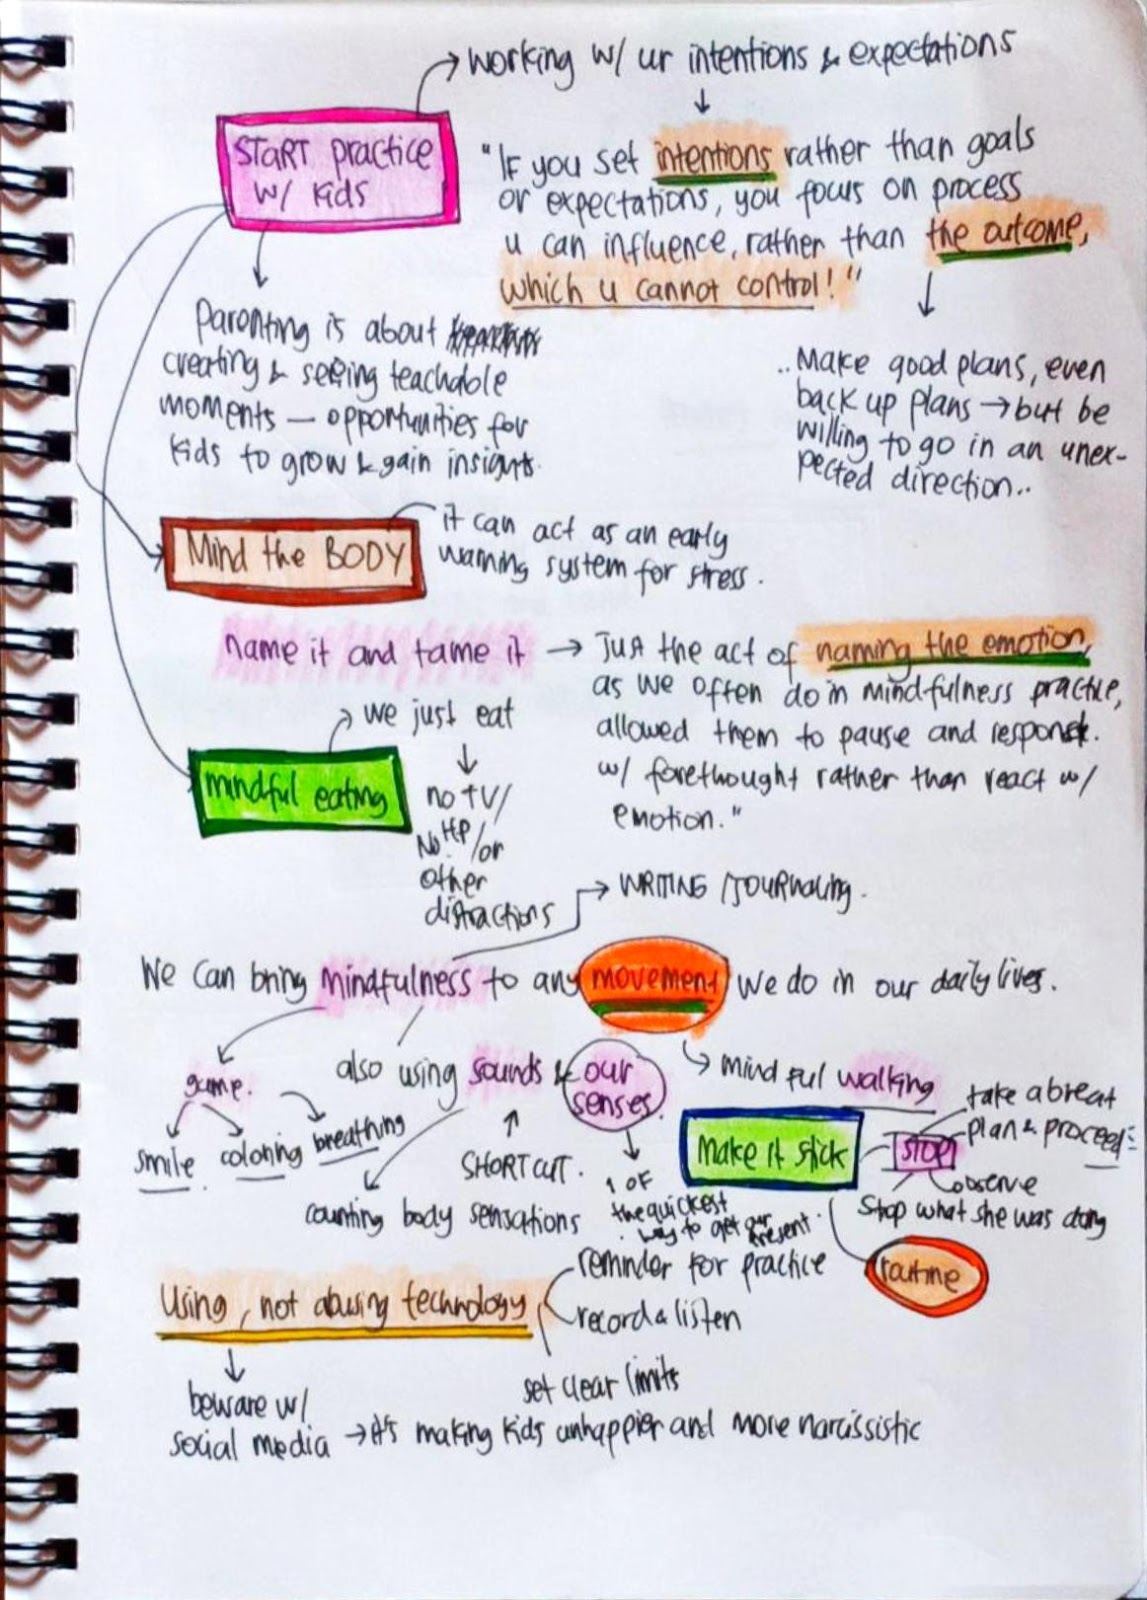 working w/ ur intentions & expectations
START practice
w/ kids
"IF you set intentions rather than goals
or expectations, you focus on process
u can influence, rather than the outcome,
which u cannot control!"
Parenting is about
creating & seeing teachable
moments — opportunities for
kids to grow & gain insights.
..Make good plans, even
back up plans → but be
willing to go in an unex-
pected direction..
Mind the BODY
it can act as an early
warning system for stress.
name it and tame it → Just the act of naming the emotion,
as we often do in mindfulness practice,
allowed them to pause and respond.
w/ forethought rather than react w/
emotion."
we just eat
mindful eating
no TV/
No HP/or
other
distractions
WRITING /JOURNALING.
We can bring mindfulness to any movement we do in our daily lives.
game.
smile coloring breathing
also using sounds & our
senses.
SHORTCUT.
counting body sensations
1 OF
the quickest
way to get our
present.
mindful walking
Make it stick
STOP
take a breat
plan & proceed
observe
Stop what she was doing
routine
Using, not abusing technology
reminder for practice
record & listen
set clear limits
beware w/
social media → it's making kids unhappier and more narcissistic